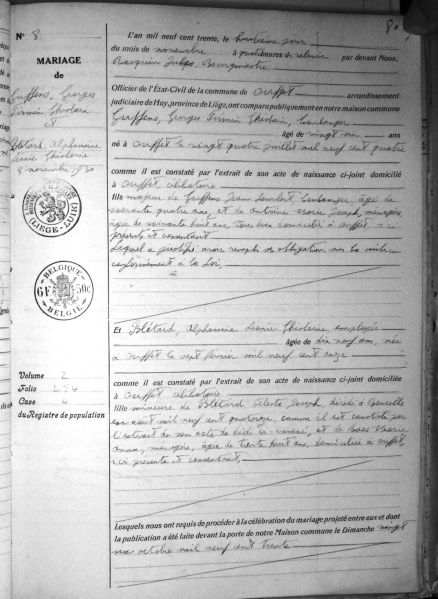 80
N° 8
MARIAGE
de
Gruffens, Georges
Firmin Ghislain
et
Blétard, Alphonsine
Léonie Ghislaine
8 novembre 1930
(LIÈGE-LUIK)
BELGIQUE
6F 50c
BELGIË
Volume 2
Folio 254
Case 4
du Registre de population
L'an mil neuf cent trente, le huitième jour
du mois de novembre à quatre heures de relevée par devant Nous,
Racquin Jules, Bourgmestre
Officier de l'État-Civil de la commune de Ouffet arrondissement
judiciaire de Huy, province de Liége, ont comparu publiquement en notre maison commune
Gruffens, Georges Firmin Ghislain, boulanger
âgé de vingt six ans
né à Ouffet le vingt quatre juillet mil neuf cent quatre
comme il est constaté par l'extrait de son acte de naissance ci-joint domicilié
à Ouffet, célibataire
fils majeur de Gruffens Jean Lambert, boulanger, âgé de
soixante quatre ans, et de Antoine Marie Joseph, ménagère,
âgée de soixante huit ans, tous deux domiciliés à Ouffet, ici
présents et consentant
Lequel a justifié avoir rempli ses obligations sur la milice
conformément à la loi,
Et Blétard, Alphonsine Léonie Ghislaine employée
âgée de dix neuf ans, née
à Ouffet le vingt février mil neuf cent onze
comme il est constaté par l'extrait de son acte de naissance ci-joint domicilié
à Ouffet célibataire
fille mineure de Blétard Céleste Joseph, décédé à
août mil neuf cent quatorze, comme il est constaté par
l'extrait de son acte de décès ci-annexé, et de Marie
ménagère, âgée de trente huit ans, domiciliée à Ouffet,
ici présente et consentant,
Lesquels nous ont requis de procéder à la célébration du mariage projeté entre eux et dont
la publication a été faite devant la porte de notre Maison commune le Dimanche vingt
six octobre mil neuf cent trente